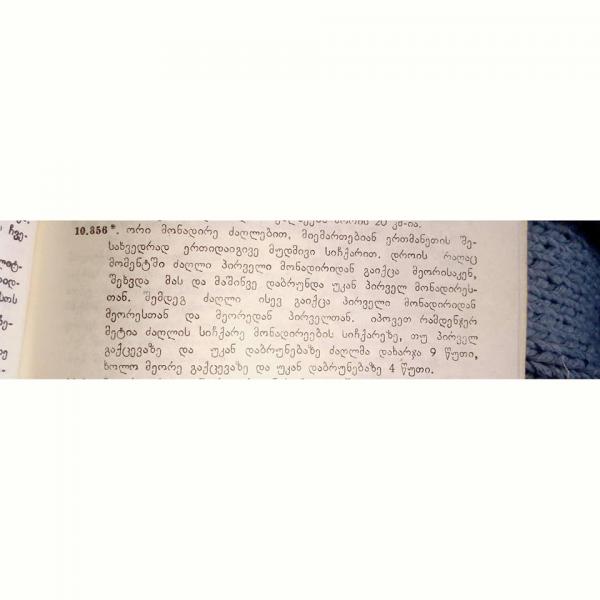 ჩვე-
20 კმ-ია.
10.356*. ორი მონადირე ძაღლებით, მიემართებიან ერთმანეთის შე-
სახვედრად ერთიდაიგივე მუდმივი სიჩქარით. დროის რაღაც
მომენტში ძაღლი პირველი მონადირიდან გაიქცა მეორისაკენ,
შეხვდა მას და მაშინვე დაბრუნდა უკან პირველ მონადირეს-
თან. შემდეგ ძაღლი ისევ გაიქცა პირველი მონადირიდან
მეორესთან და მეორედან პირველთან. იპოვეთ რამდენჯერ
მეტია ძაღლის სიჩქარე მონადირეების სიჩქარეზე, თუ პირველ
გაქცევაზე და უკან დაბრუნებაზე ძაღლმა დახარჯა 9 წუთი,
ხოლო მეორე გაქცევაზე და უკან დაბრუნებაზე 4 წუთი.